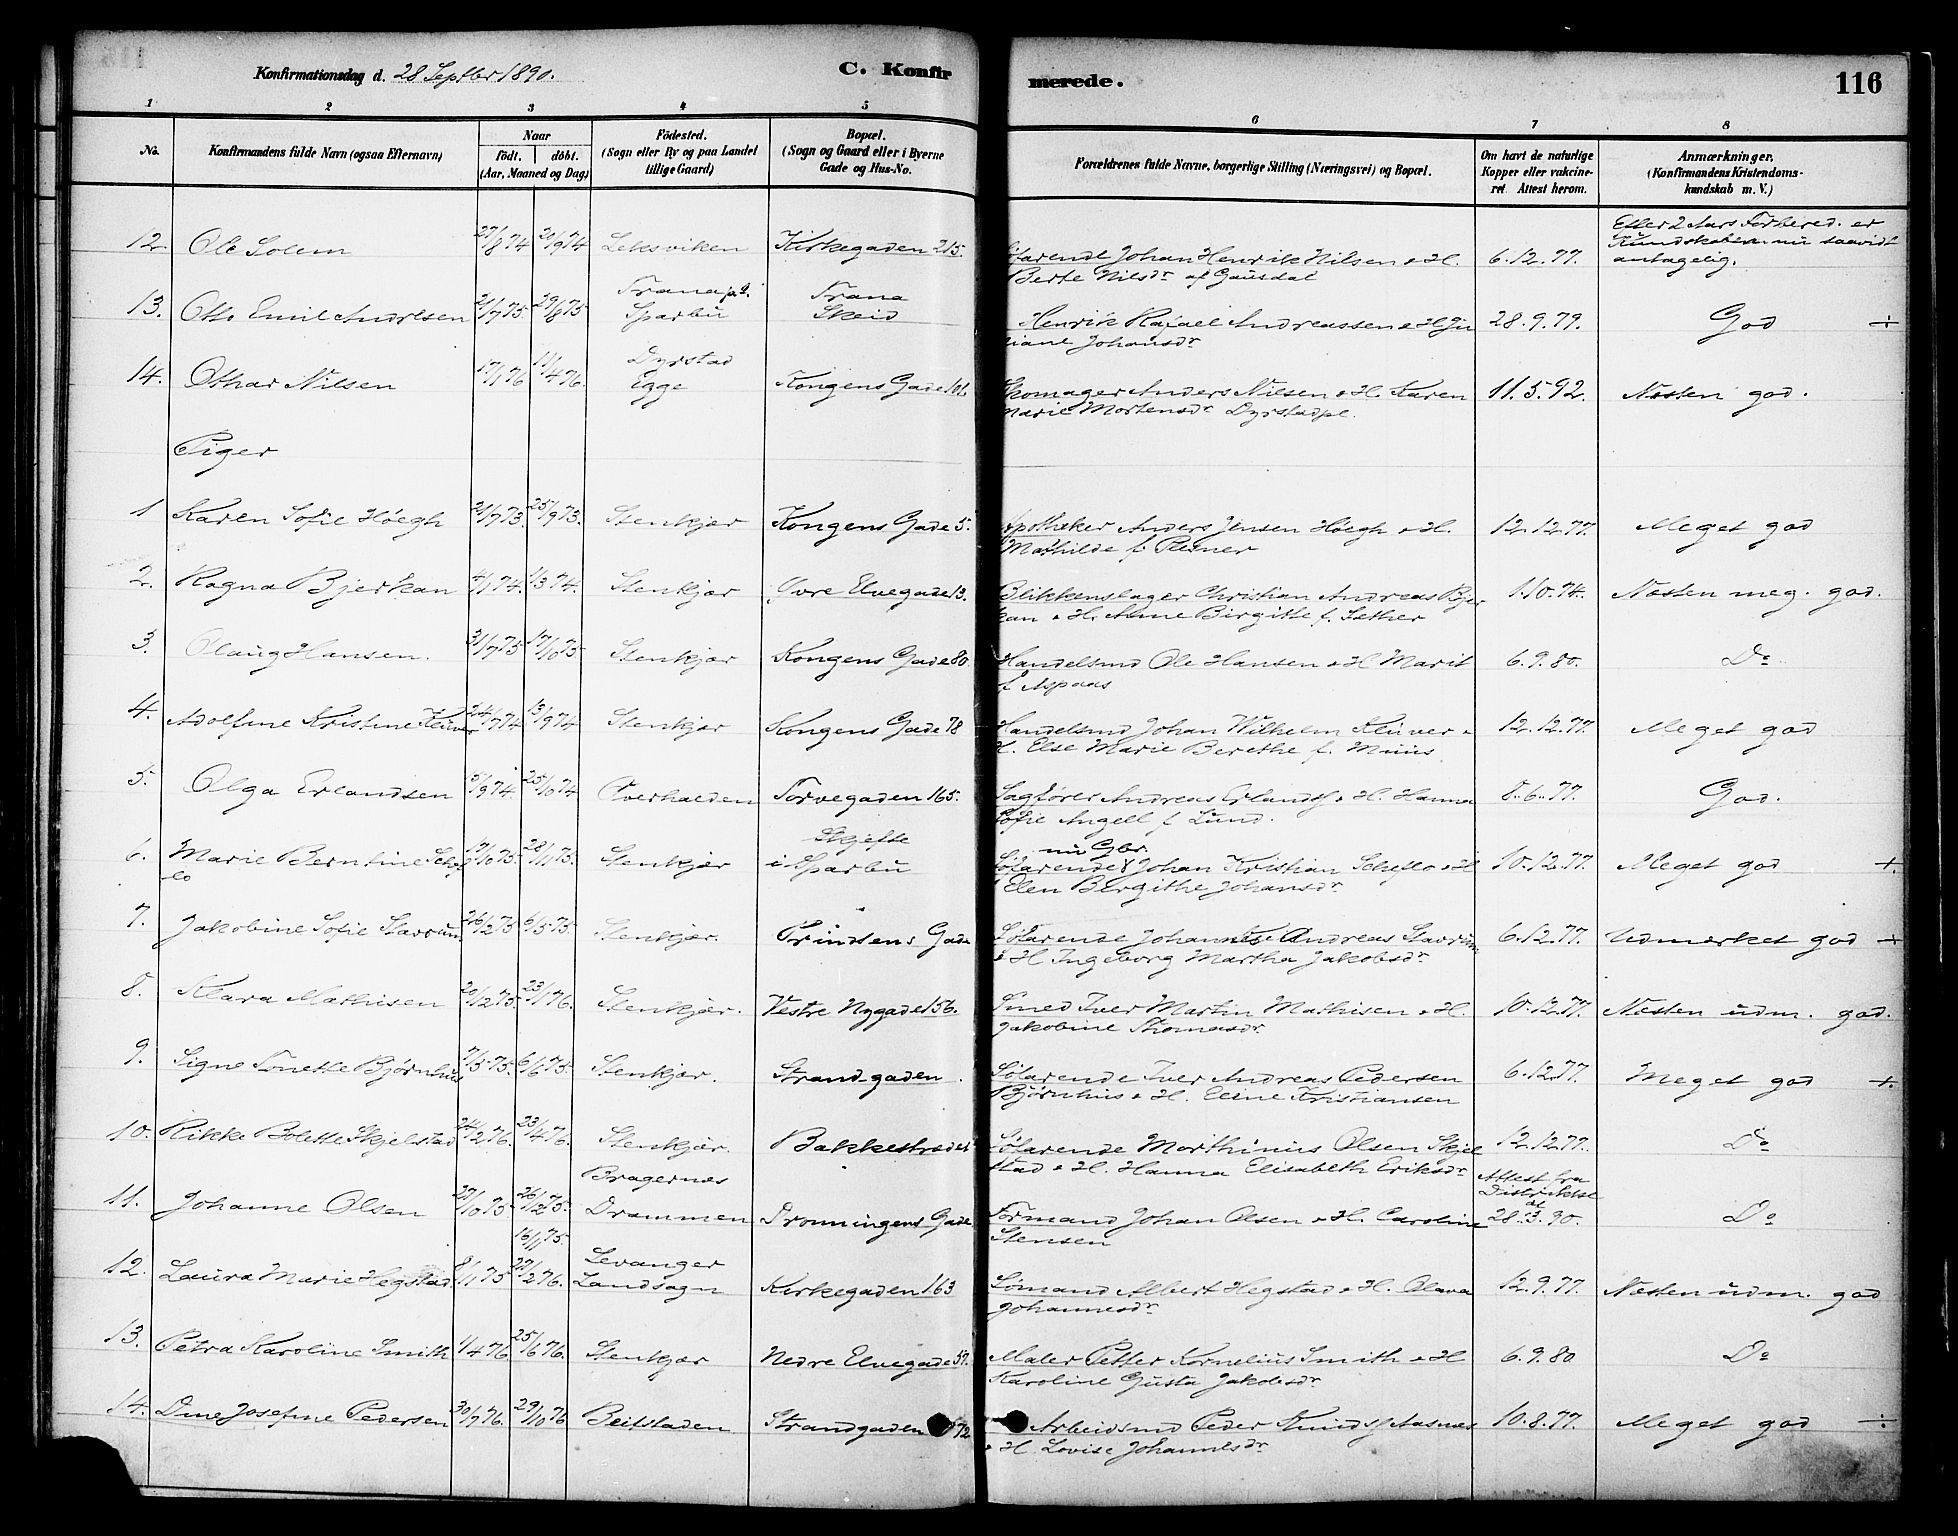 Konfirmationsdag d. 28 Septbr 1890.
C. Konfirmerede.
116
1 2 3 4 5 6 7 8
No.
Konfirmandens fulde Navn (ogsaa Efternavn)
Naar
födt. döbt.
(Aar, Maaned og Dag)
Födested.
(Sogn eller By og paa Landet
tillige Gaard)
Bopæl.
(Sogn og Gaard eller i Byerne
Gade og Hus-No.
Forældrenes fulde Navne, borgerlige Stilling (Næringsvei) og Bopæl.
Om havt de naturlige
Kopper eller vakcine-
ret. Attest herom.
Anmærkninger.
(Konfirmandens Kristendoms-
kundskab m. V.)
Efter 2 Aars Forbered. er
Kundskaben nu saavidt
antagelig.
12. Ole Solem 27/8 74 20/9 74 Leksviken Kirkegaden 215. Söfarende Johan Henrik Nilsen & H. 6.12.77.
Berte Nilsdr af Gausdal
Frana pl. Frana
13. Otto Emil Andresen 21/7 75. 29/8 75 Sparbu Skeid Henrik Rafael Andreassen & H. Ju 28.9.79. God ÷
liane Johansdr
Dyrstad
14. Othar Nilsen 17/1 76 17/4 76. Egge Kongens Gade 106 Skomager Anders Nilsen & H. Karen 11.5.92. Næsten god.
Marie Mortensdr Dyrstadpl.
Piger
1 Karen Sofie Höegh 21/7 73. 25/9 73. Stenkjær Kongens Gade 5. Apotheker Anders Jensen Höegh & H. 12.12.77. Meget god
Mathilde f.
2. Ragna Bjerkan 4/1 74. 1/3 74. Stenkjær Övre Elvegade 13. Blikkenslager Christian Andreas Bjer 1.10.74. Næsten meg. god.
kan & H. Anne Birgitte f. Sæther
3. Olaug Hansen. 31/7 75 17/10 75 Stenkjær Kongens Gade 80. Handelsmd Ole Hansen & H. Marit 6.9.80. Do
f. Aspaas
4. Adolfine Kristine Klüwer 24/7 74 13/9 74 Stenkjær Kongens Gade 78 Handelsmd Johan Wilhelm Klüver & 12.12.77. Meget god
H. Else Marie Berethe f. Muus
5. Olga Erlandsen 15/9 74. 25/10 74 Overhalden Torvegaden 165. Sagförer Andreas Erlands. & H. Hanna 8.6.77. God.
Sofie Angell f. Lund.
Skjefte nu Gbr.
6. Marie Berntine Schef 17/10 75. 28/11 75. Stenkjær i Sparbu Söfarende Johan Kristian Scheflo & H 10.12.77. Meget god +.
lo Elen Bergithe Johansdr
7. Jakobine Sofie Stavrum 26/2 75 6/5 75. Stenkjær. Prindsens Gade Söfarende Johannes Andreas Stavrum 6.12.77. Udmærket god ÷
& H Ingeborg Martha Jakobsdr
8. Klara Mathisen 20/12 75. 23/1 76. Stenkjær. Vestre Nygade 156. Smed Iver Martin Mathisen & H. 10.12.77. Næsten udm. god.
Jakobine Thomasdr
9. Signe Tonette Björnhus 7/5 75. 6/6 75. Stenkjær. Strandgaden. Söfarende Iver Andreas Pedersen 6.12.77. Meget god +.
Björnhus & H. Eline Kristiansen
10. Rikke Bolette Skjelstad 24/2 76. 23/4 76. Stenkjær. Bakkestrædet Söfarende Morthinus Olsen Skjel 12.12.77. Do
stad & H. Hanna Elisabeth Eriksdr
Bragernæs Attest fra
Distriktsl.
11. Johanne Olsen 27/10 75 26/12 75. Drammen Dronningens Gade Formand Johan Olsen & H. Caroline 28.3.90. Do
Stensen
16/1 75. Levanger
12. Laura Marie Hegstad. 8/1 75 27/2 76. Landsogn Kirkegaden 163 Sömand Albert Hegstad & H. Olava 12.9.77. Næsten udm. god
Johannesdr
13. Petra Karoline Smith 1/4 76 25/6 76. Stenkjær Nedre Elvegade 57. Maler Petter Kornelius Smith & H 6.9.80 Do
Karoline Gusta Jakobsdr
14. Dine Josefine Pedersen 30/7 76. 29/10 76 Beitstaden Strandgaden 72 Arbeidsmd Peder Knuds. Aasnæs 10.8.77. Meget god ÷
& H. Lovise Johannesdr